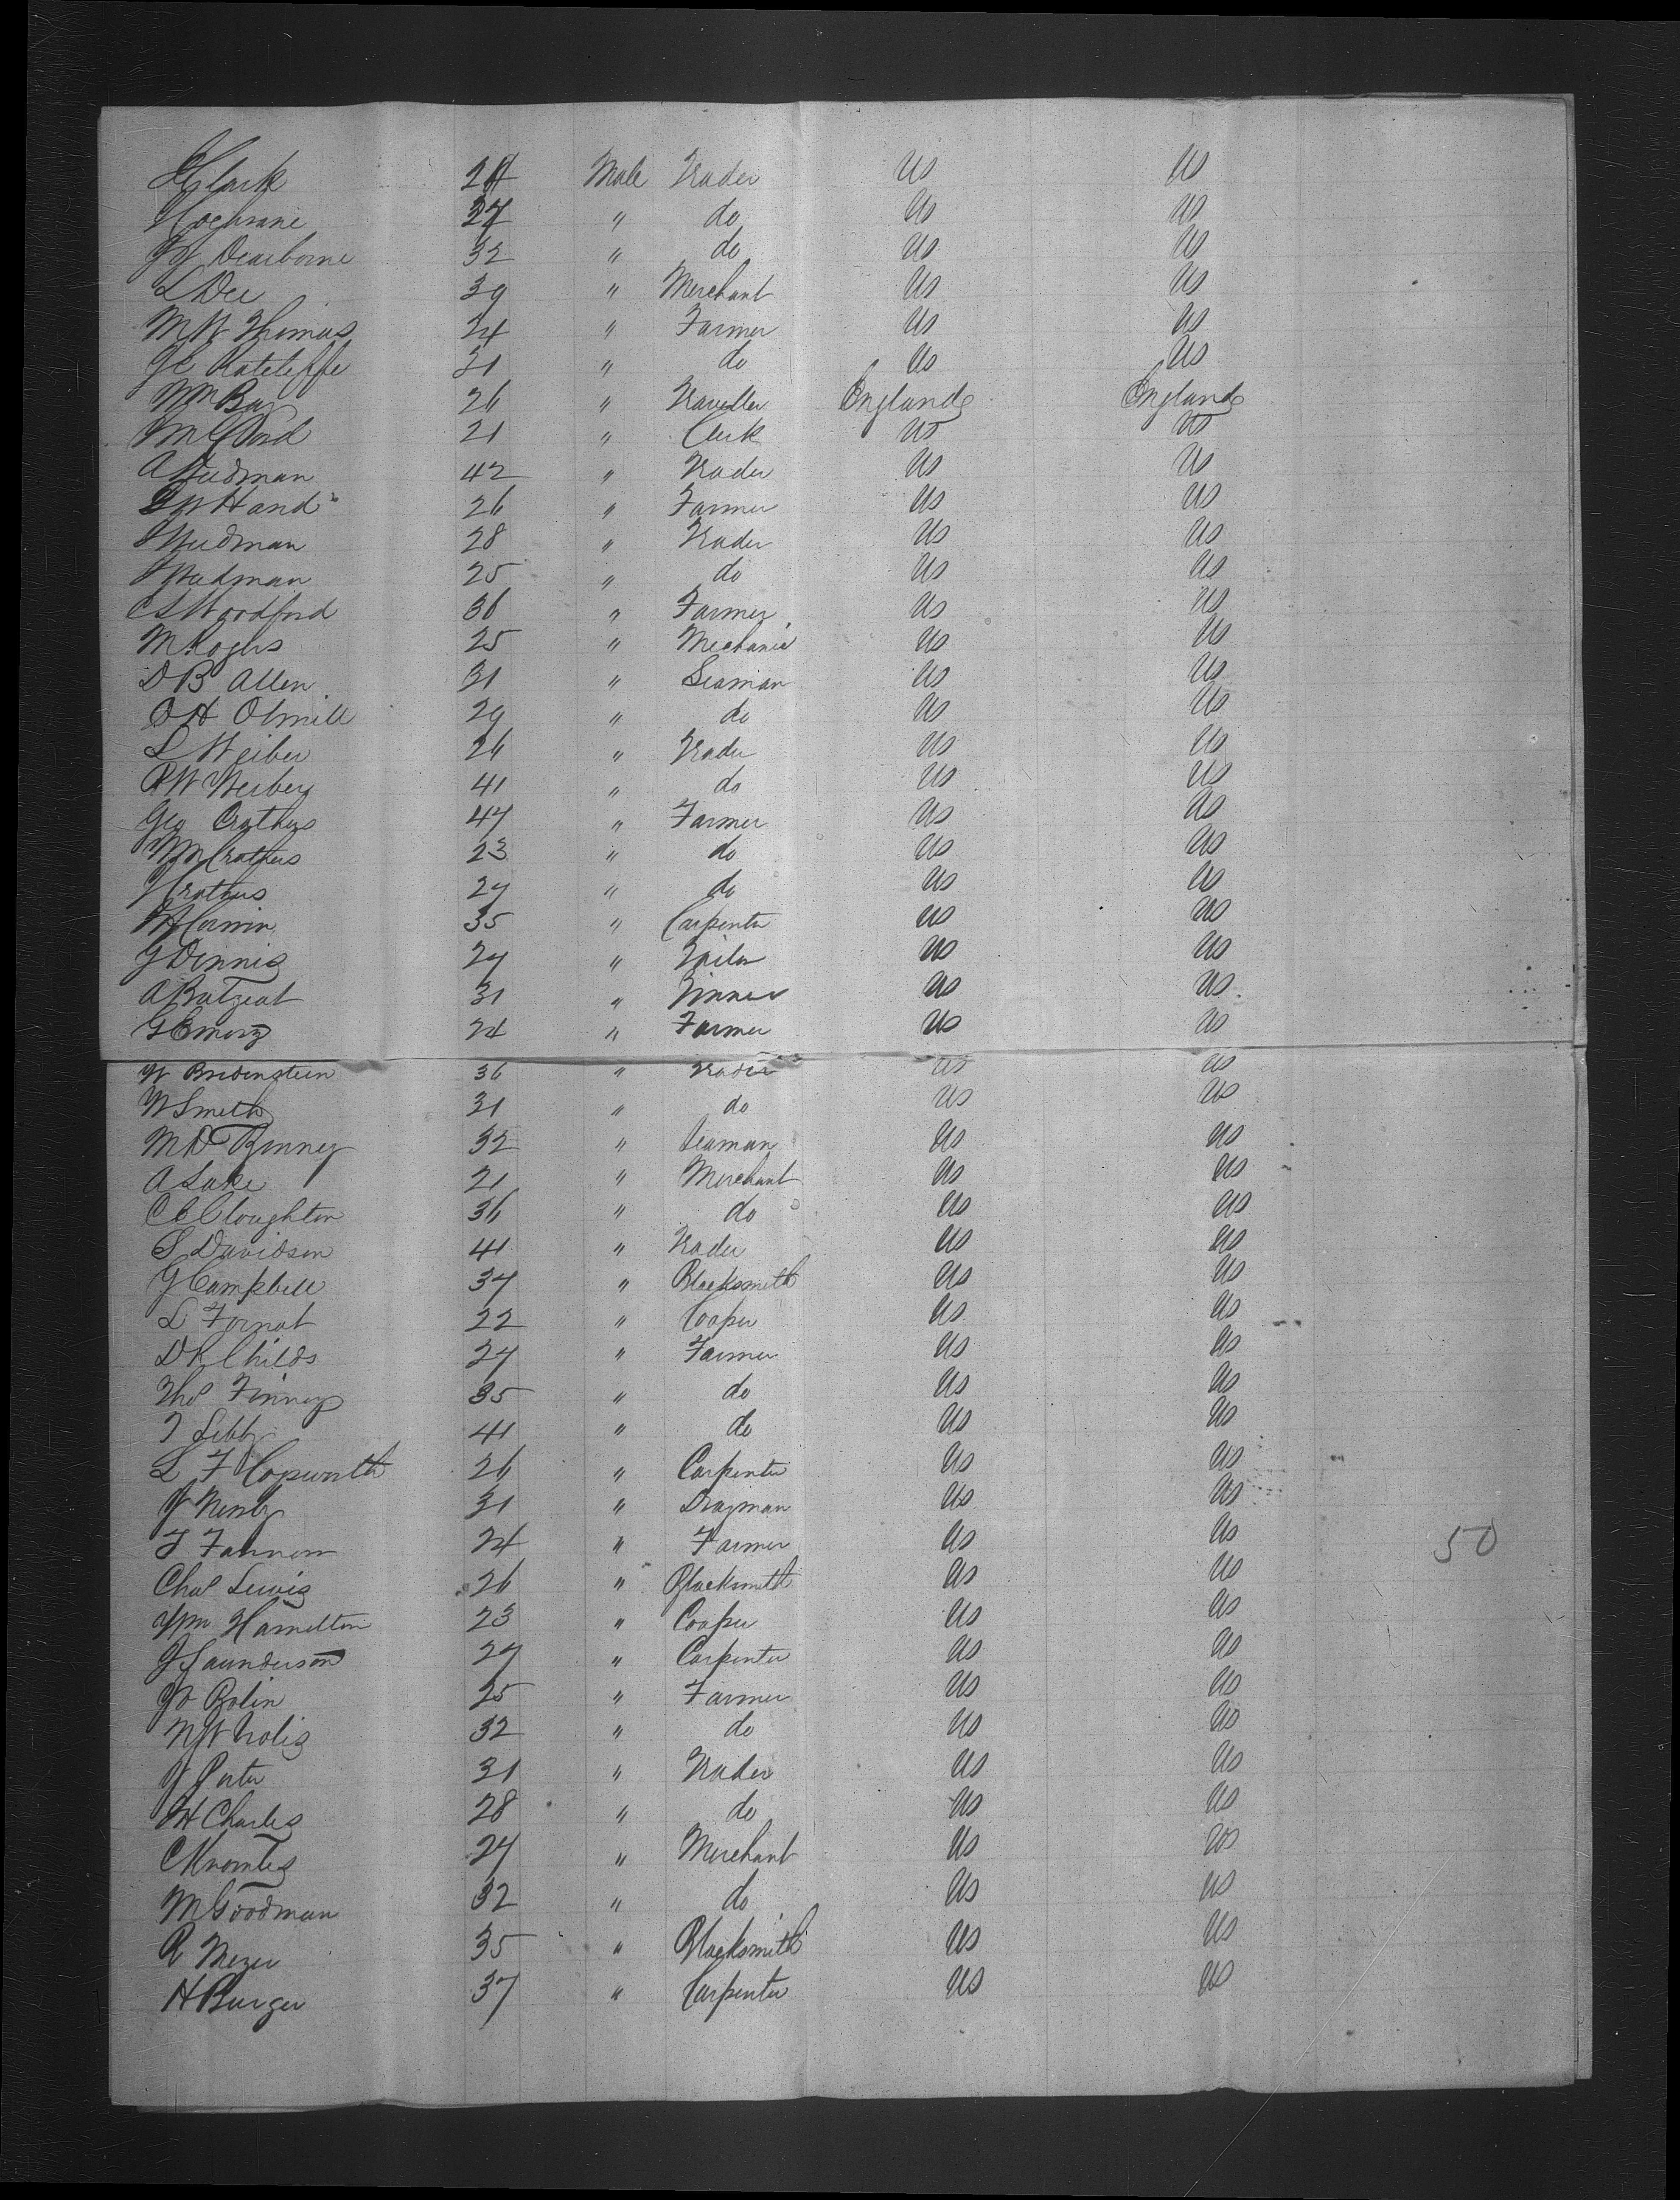 Clark 24 Male Trader US US
Cochrane 27 " do US US
Dearborne 32 " do US US
L Dee 39 " Merchant US US
M W Thomas 24 " Farmer US US
Ratcliffe 31 " do US US
Wm 26 " Traveller England England
Ford 21 " Clerk US US
A 42 " Trader US US
Hand 26 " Farmer US US
28 " Trader US US
25 " do US US
C S Woodford 36 " Farmer US US
M Rogers 25 " Mechanic US US
D B Allen 31 " Seaman US US
29 " do US US
L Weiber 26 " Trader US US
41 " do US US
Geo Crothers 47 " Farmer US US
Wm Crothers 23 " do US US
Crothers 27 " do US US
35 " Carpenter US US
J Dennis 27 " US US
A 31 " US US
24 " Farmer US US
W Bridenstein 36 " Trader US US
W Smith 31 " do US US
M D Benney 32 " Seaman US US
A Lake 21 " Merchant US US
Cloughton 36 " do US US
S Davidson 41 " Trader US US
G Campbell 37 " Blacksmith US US
L 22 " Cooper US US
D R Childs 27 " Farmer US US
Tho Finney 35 " do US US
T 41 " do US US
L F Copsworth 26 " Carpenter US US
31 " Drayman US US
24 " Farmer US US 50
Chas Lewis 26 " Blacksmith US US
Wm Hamilton 23 " Cooper US US
J Saunderson 27 " Carpenter US US
Bolin 25 " Farmer US US
32 " do US US
J Porter 31 " Trader US US
H Charles 28 " do US US
C 27 " Merchant US US
M Goodman 32 " do US US
R Mezer 35 " Blacksmith US US
H Burger 37 " Carpenter US US